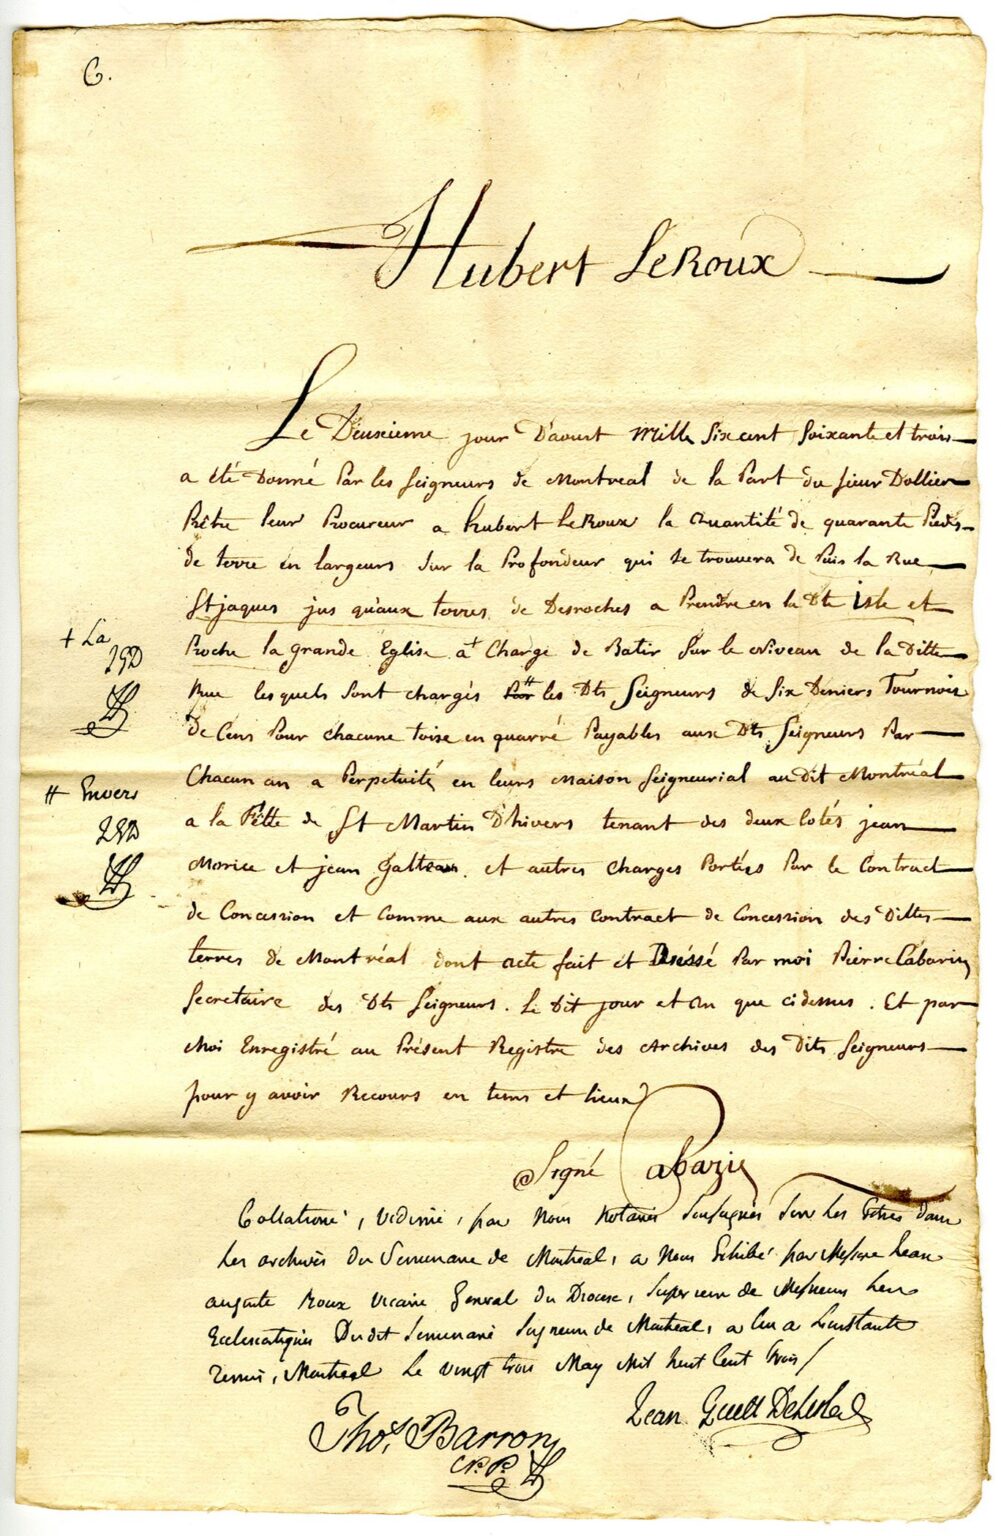 C.
Hubert LeRoux
Le Deuxieme jour D'aoust Mille Six cent Soixante et trois
a été Donné Par les Seigneurs de Montreal de la Part du Sieur Dollier
Prêtre leur Procureur a hubert LeRoux la Quantité de quarante Pieds
de terre en largeurs sur la Profondeur qui se trouvera de Puis la Rue
St jaques jus qu'aux terres de Desroches a Prendre en la Dte Isle et
Proche la grande Eglise à + Charge de Batir Sur le Niveau de la Ditte
+ La
Rue lesquels sont chargés # les Dts Seigneurs de Six Deniers Tournois
de Cens Pour chacune toise en quarré Payables aux Dts Seigneurs Par
Chacun an a Perpetuité en leurs Maison Seigneurial audit Montréal
# Envers
a la Fête de St Martin D'hivers tenant des deux Cotés jean
Morice et jean Galteau. et autres Charges Portées Par le Contract
de Concession et Comme aux autres Contract de Concession des Dittes
terres de Montréal dont acte fait et Dréssé Par moi Pierre Cabazié
Secretaire des Dts Seigneurs. Le Dit jour et An que cidessus. Et par
Moi Enregistré au Présent Registre des Archives des Dits Seigneurs
pour y avoir Recours en tems et lieux
Signé Cabazié
Collationé, Vidimé, par Nous Notaires Soussignés Sur Les dans
Les archives du Seminaire de Montréal, a Nous Exhibé par Messire Jean
auguste Roux Vicaire General du Diocese, Superieur de Messieurs Les
Ecclesiastiques Dudit Seminaire Seigneurs de Montreal, a Lui a L'instant
Remis, Montreal Le Vingt trois May Mil huit Cent trois /
Jean Guill DeLisle
Thos. Barron
N.P.